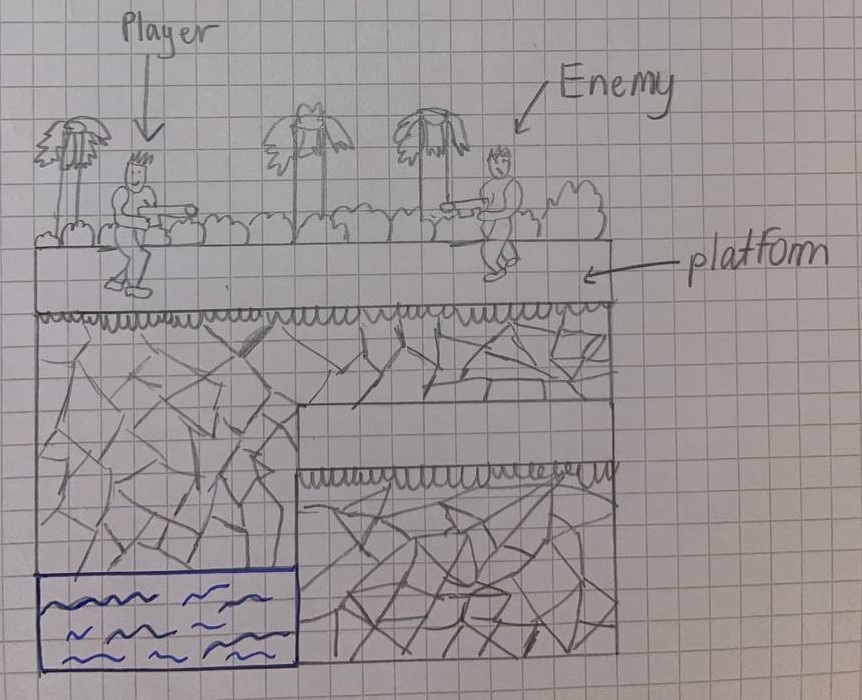 Player
Enemy
platform